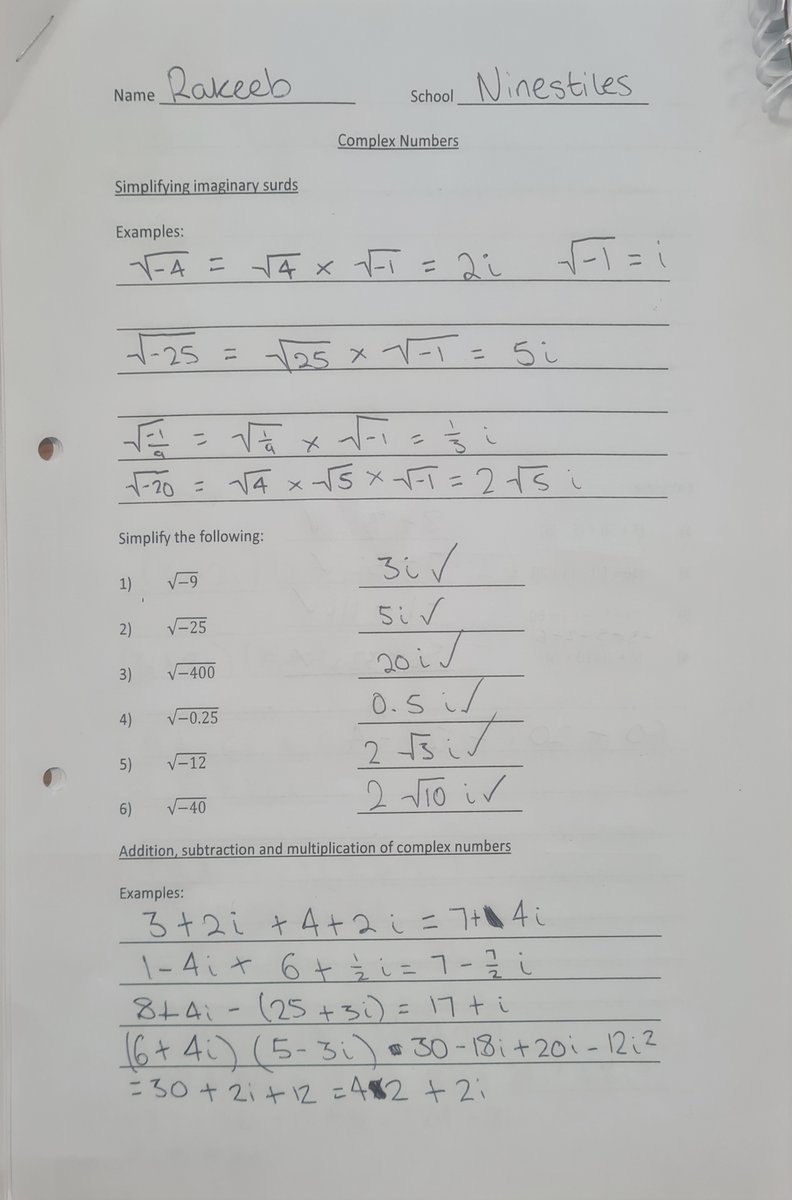 Name Rakeeb School Ninestiles
Complex Numbers
Simplifying imaginary surds
Examples:
√-4 = √4 × √-1 = 2i √-1 = i
√-25 = √25 × √-1 = 5i
√(-1/9) = √(1/9) × √-1 = 1/3 i
√-20 = √4 × √5 × √-1 = 2√5 i
Simplify the following:
1) √−9 3i ✓
2) √−25 5i ✓
3) √−400 20i ✓
4) √−0.25 0.5i ✓
5) √−12 2√3 i ✓
6) √−40 2√10 i ✓
Addition, subtraction and multiplication of complex numbers
Examples:
3 + 2i + 4 + 2i = 7 + 4i
1 - 4i + 6 + 1/2 i = 7 - 7/2 i
8 + 4i - (25 + 3i) = 17 + i
(6 + 4i) (5 - 3i) = 30 - 18i + 20i - 12i²
= 30 + 2i + 12 = 42 + 2i